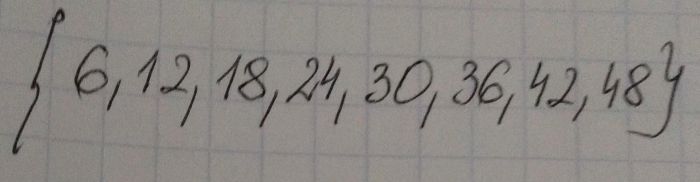 {6, 12, 18, 24, 30, 36, 42, 48}